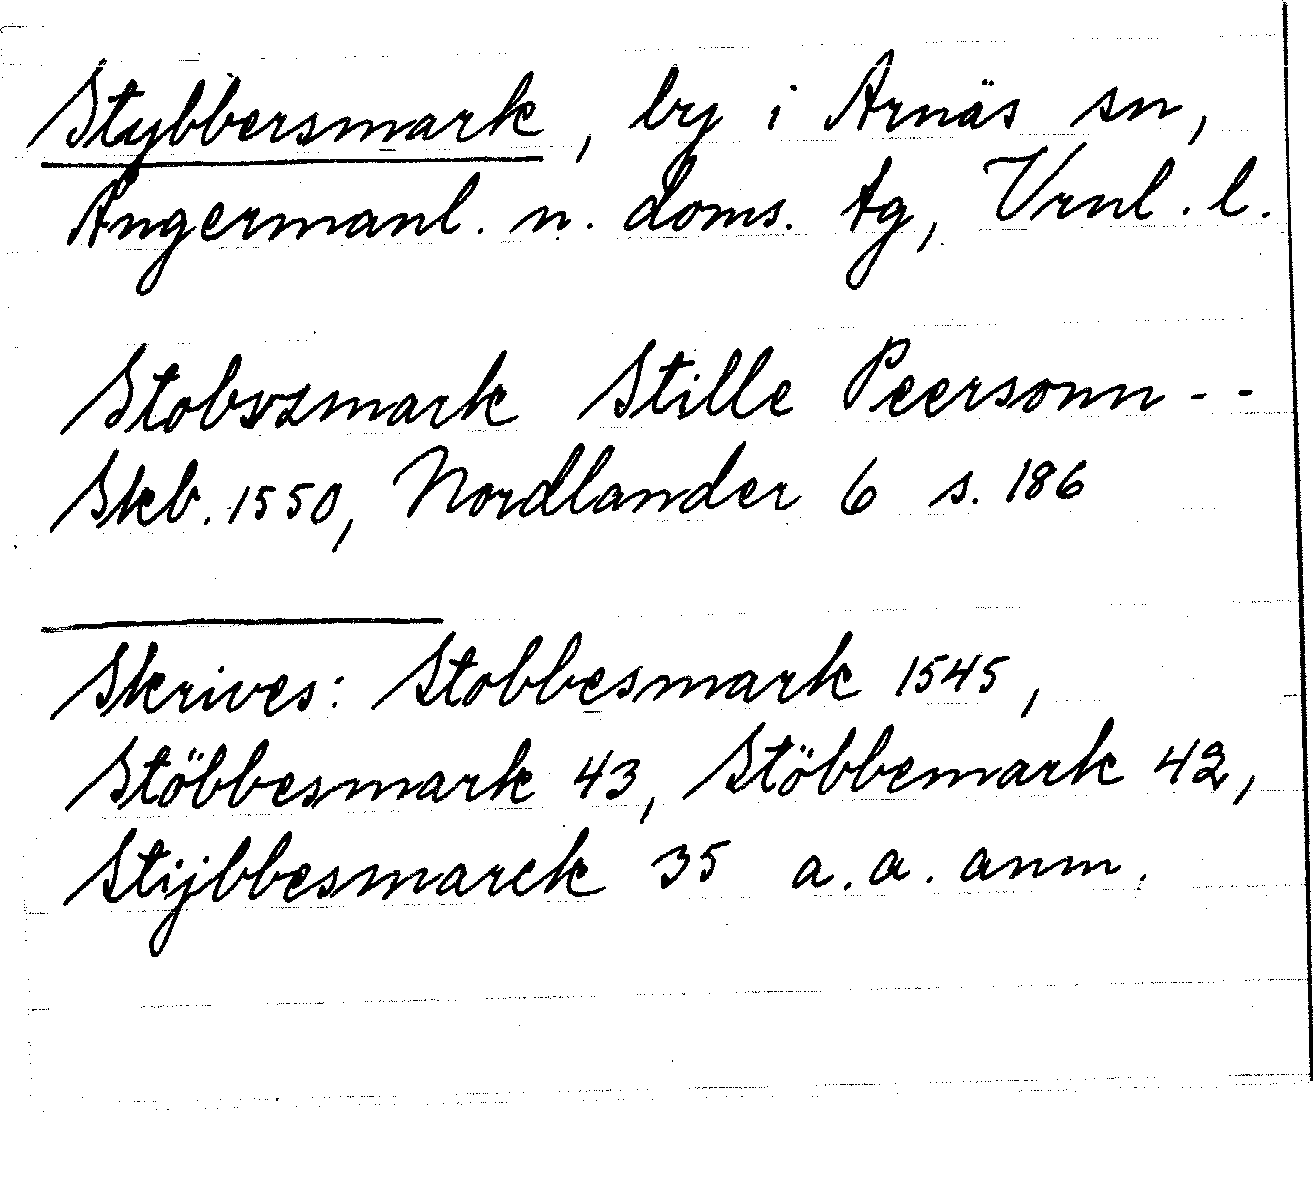 Stybbersmark, by i Arnäs sn,
Ångermanl. n. doms. tg, Vrnl. l.
Stobszmark Stille Peersonn - -
Skb. 1550, Nordlander 6 s. 186
Skrives: Stobbesmark 1545,
Stöbbesmark 43, Stöbbemark 42,
Stijbbesmarck 35 a. a. anm.